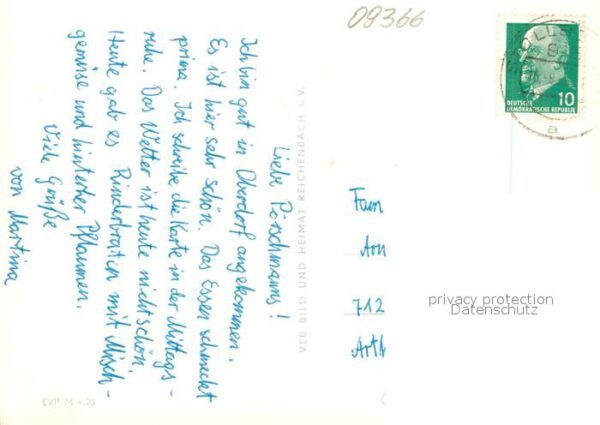 Liebe Pörschmanns!
Ich bin gut in Oberdorf angekommen.
Es ist hier sehr schön. Das Essen schmeckt
prima. Ich schreibe die Karte in der Mittags-
ruhe. Das Wetter ist heute nicht schön.
Heute gab es Rinderbraten mit Misch-
gemüse und hinterher Pflaumen.
Viele Grüße
von Martina
09366
VEB BILD UND HEIMAT REICHENBACH I. V.
EVP M -.25
DEUTSCHE
DEMOKRATISCHE REPUBLIK
10
a
Fam
712
privacy protection
Datenschutz